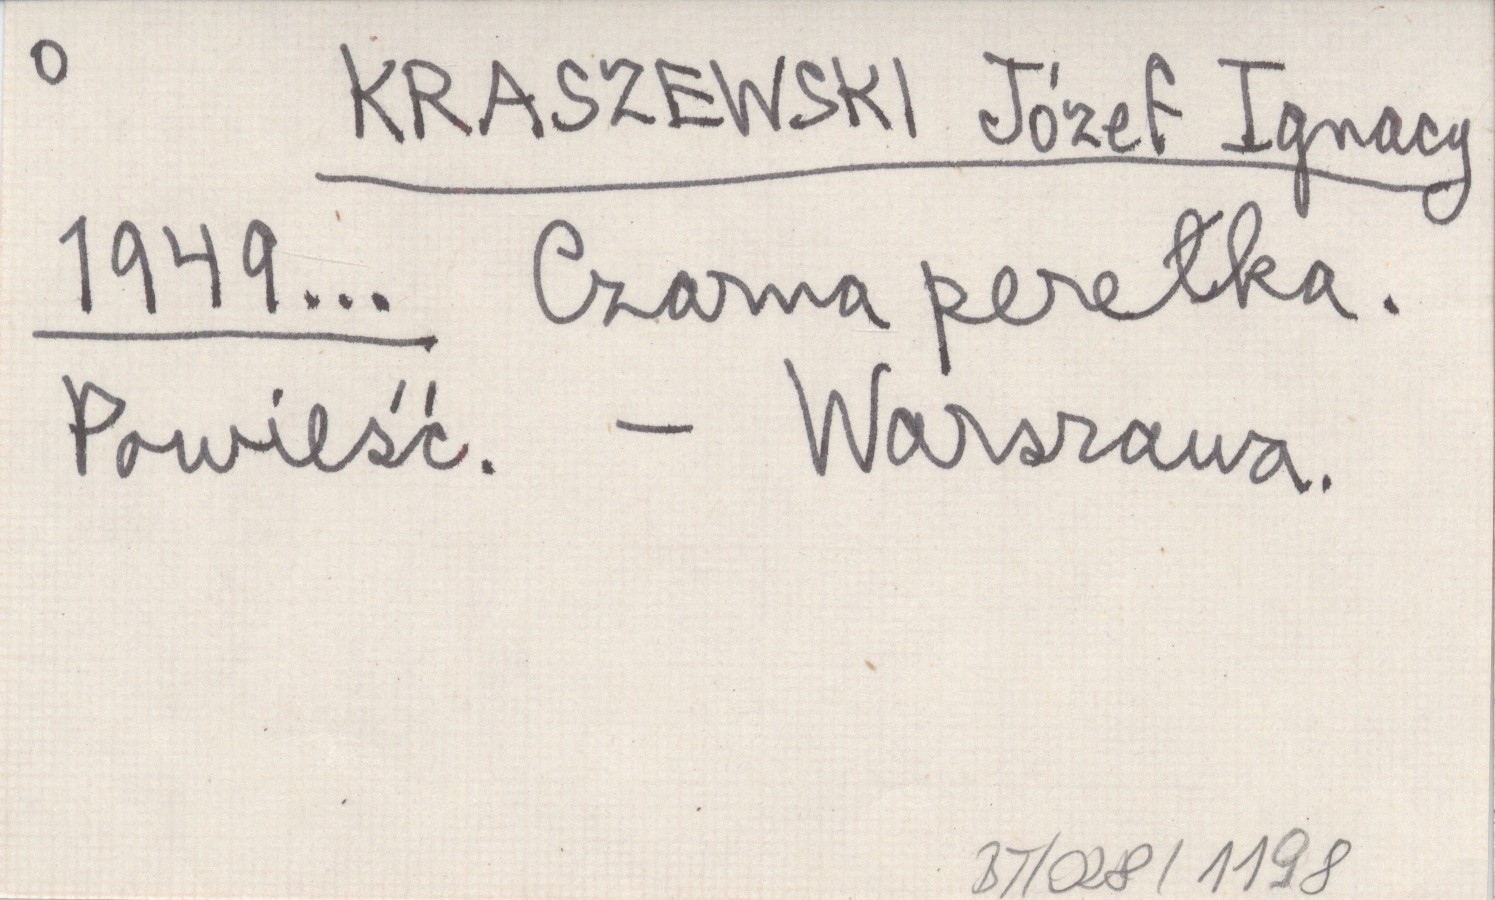 o KRASZEWSKI Józef Ignacy
1949... Czarna perełka.
Powieść. – Warszawa.
BT/028/1198